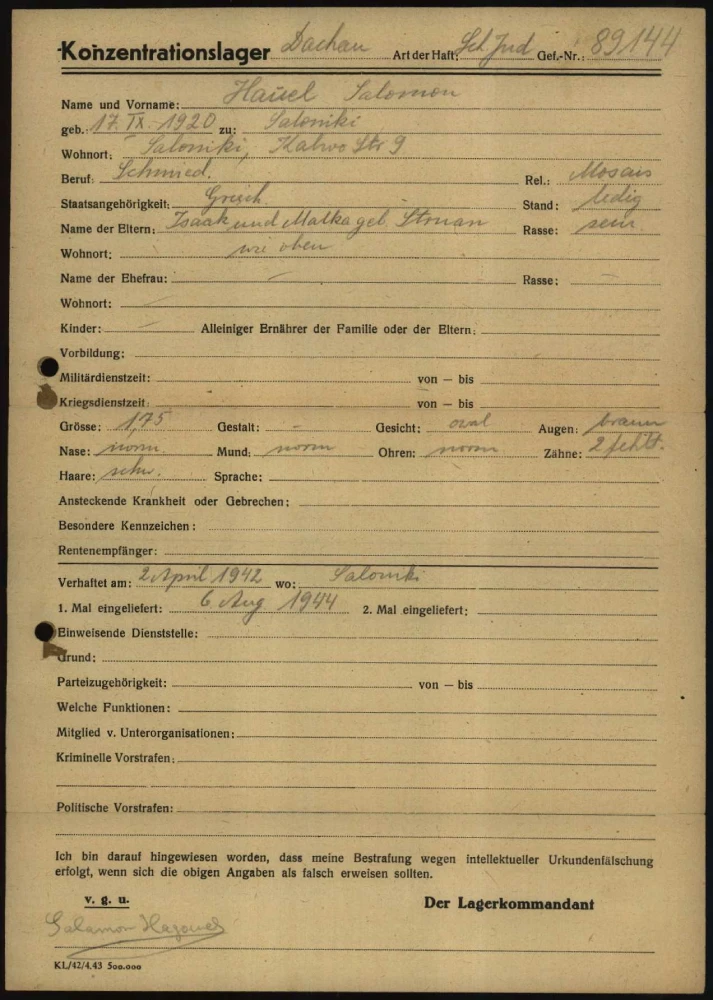 Konzentrationslager Dachau Art der Haft: Sch. Jud Gef.-Nr.: 89144
Name und Vorname: Hasuel Salomon
geb.: 17. IX. 1920 zu: Saloniki
Wohnort: Saloniki, Str 9
Beruf: Schmied. Rel.: Mosais
Staatsangehörigkeit: Griech. Stand: ledig
Name der Eltern: Isaak und Malka geb. Rasse: sem
Wohnort: wie oben
Name der Ehefrau: — Rasse: —
Wohnort: —
Kinder: — Alleiniger Ernährer der Familie oder der Eltern:
Vorbildung:
Militärdienstzeit: von — bis
Kriegsdienstzeit: von — bis
Grösse: 1,75 Gestalt: - Gesicht: oval Augen: braun
Nase: norm. Mund: norm Ohren: norm Zähne: 2 fehlt.
Haare: schw. Sprache:
Ansteckende Krankheit oder Gebrechen:
Besondere Kennzeichen:
Rentenempfänger:
Verhaftet am: 2 April 1942 wo: Saloniki
1. Mal eingeliefert: 6 Aug 1944 2. Mal eingeliefert:
Einweisende Dienststelle:
Grund:
Parteizugehörigkeit: von — bis
Welche Funktionen:
Mitglied v. Unterorganisationen:
Kriminelle Vorstrafen:
Politische Vorstrafen:
Ich bin darauf hingewiesen worden, dass meine Bestrafung wegen intellektueller Urkundenfälschung
erfolgt, wenn sich die obigen Angaben als falsch erweisen sollten.
v. g. u. Der Lagerkommandant
Salamon Hazouel
KL/42/4.43 500.000